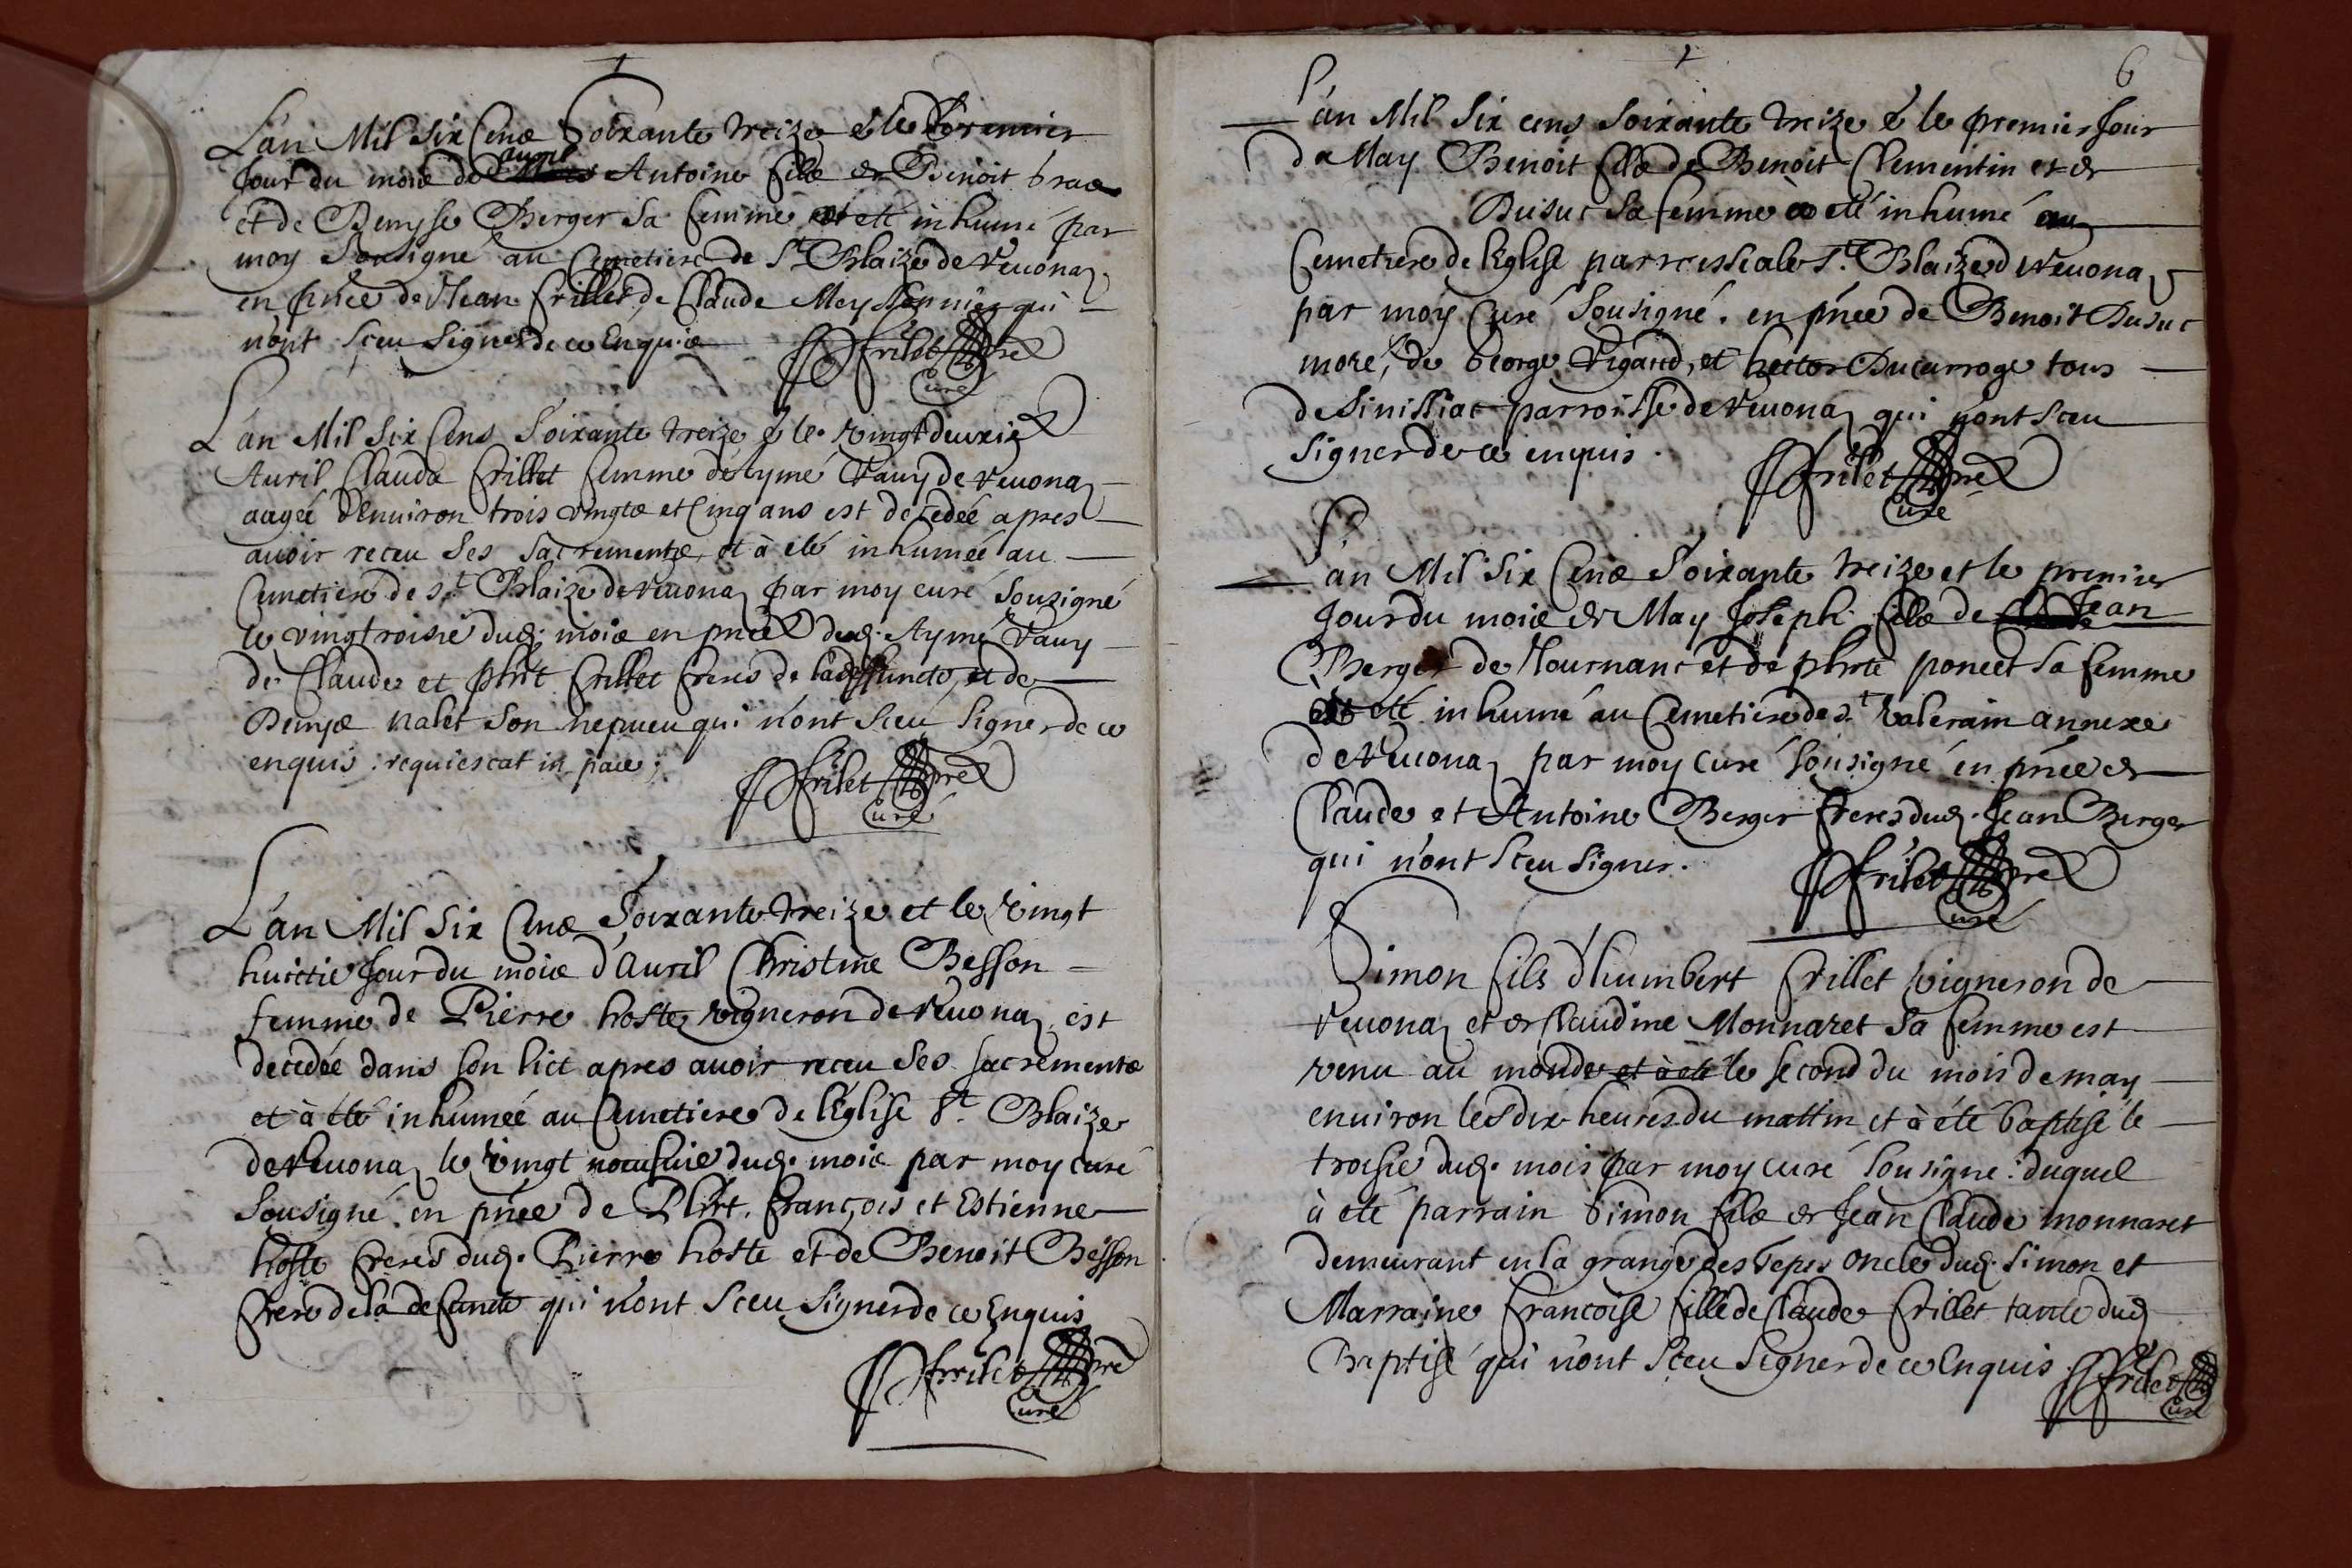 L'an Mil Six Cens Soixante treize & le premier
Jour du mois de avril Antoine fils de Benoit bras
et de Denyse Berger Sa femme at eté inhumé par
moy Sousigné au Cemetiere de St Blaize de Veuonaz
en pnce de Jean frillet, de Claude Meyssonnier qui
n'ont Sceu Signer de ce Enquis
ffrilet pre
Curé
L'an Mil Six Cens Soixante treize & le vingt deuxie
Auril Claude frillet femme d'Aymé Vauy de Veuonaz
aagée d'Enuiron trois vingts et Cinq ans est decedée apres
auoir receu Ses Sacrements, et à eté inhumée au
Cemetiere de St Blaize de Veuonaz par moy curé Sousigné
le vingtroisie dud. mois en pnce dud. Aymé Vauy
de Claude et Phit frillet freres de la deffuncte, et de
Denyse nalet Son nepueu qui n'ont Sceu Signer de ce
enquis : requiescat in pace ;
ffrilet pre
Curé
L'an Mil Six Cens Soixante treize et le vingt
huictie Jour du mois d'Auril Christine Besson
femme de Pierre hoste vigneron de Veuonaz est
decedée dans Son lict apres auoir receu Ses Sacrements
et à eté inhumée au Cemetiere de l'Eglise St Blaize
de Veuonaz le vingt neufuie dud. mois par moy curé
Sousigné. en pnce de Phit. françois et Estienne
hoste freres dud. Pierre hoste et de Benoit Besson
frere de la defuncte qui n'ont Sceu Signer de ce Enquis
ffrilet pre
Curé
6
L'an Mil Six cens Soixante treize & le premier Jour
de May Benoit fils de Benoit Clementin et de
Dusuc Sa femme à eté inhumé au
Cemetiere de l'Eglise parrossiale St Blaize de Veuonaz
par moy Curé Sousigné. en pnce de Benoit Dusuc
more, de George Vigand, et hector Ducarroge tous
de Sinissiac parroisse de Veuonaz qui n'ont Sceu
Signer de ce enquis.
ffrilet pre
Curé
L'an Mil Six Cens Soixante treize et le premier
Jour du mois de May Joseph fils de Jean
Berger de Tournant et de phite poncet Sa femme
at eté inhumé au Cemetiere de St Valerain annexe
de Veuonaz par moy Curé Sousigné en pnce de
Claude et Antoine Berger freres dud. Jean Berger
qui n'ont Sceu Signer.
ffrilet pre
Curé
Simon fils d'humbert frillet vigneron de
Veuonaz et de Claudine Monnaret Sa femme est
venu au monde et à eté le Second du mois de may
enuiron les dix heures du mattin et à été baptisé le
troisie dud. mois par moy curé Sousigné : duquel
à eté parrain Simon fils de Jean Claude monnaret
demeurant en la grange des Seps oncle dud. Simon et
Marraine francoise fille de Claude frillet tante dud
Baptisé qui n'ont Sceu Signer de ce Enquis
ffrilet
Curé